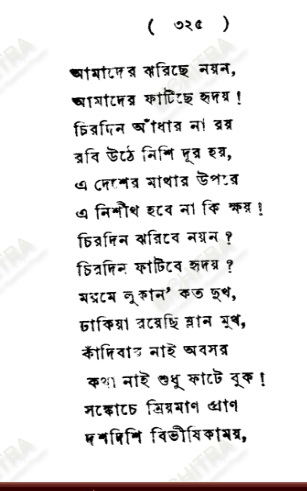 ( ৩২৫ )
আমাদের ঝরিছে নয়ন,
আমাদের ফাটিছে হৃদয় !
চিরদিন আঁধার না রয়
রবি উঠে নিশি দূর হয়,
এ দেশের মাথার উপরে
এ নিশীথ হবে না কি ক্ষয় !
চিরদিন ঝরিবে নয়ন ?
চিরদিন ফাটিবে হৃদয় ?
মরমে লুকান’ কত দুখ,
ঢাকিয়া রয়েছি ম্লান মুখ,
কাঁদিবার নাই অবসর
কথা নাই শুধু ফাটে বুক !
সঙ্কোচে ম্রিয়মাণ প্রাণ
দশদিশি বিভীষিকাময়,